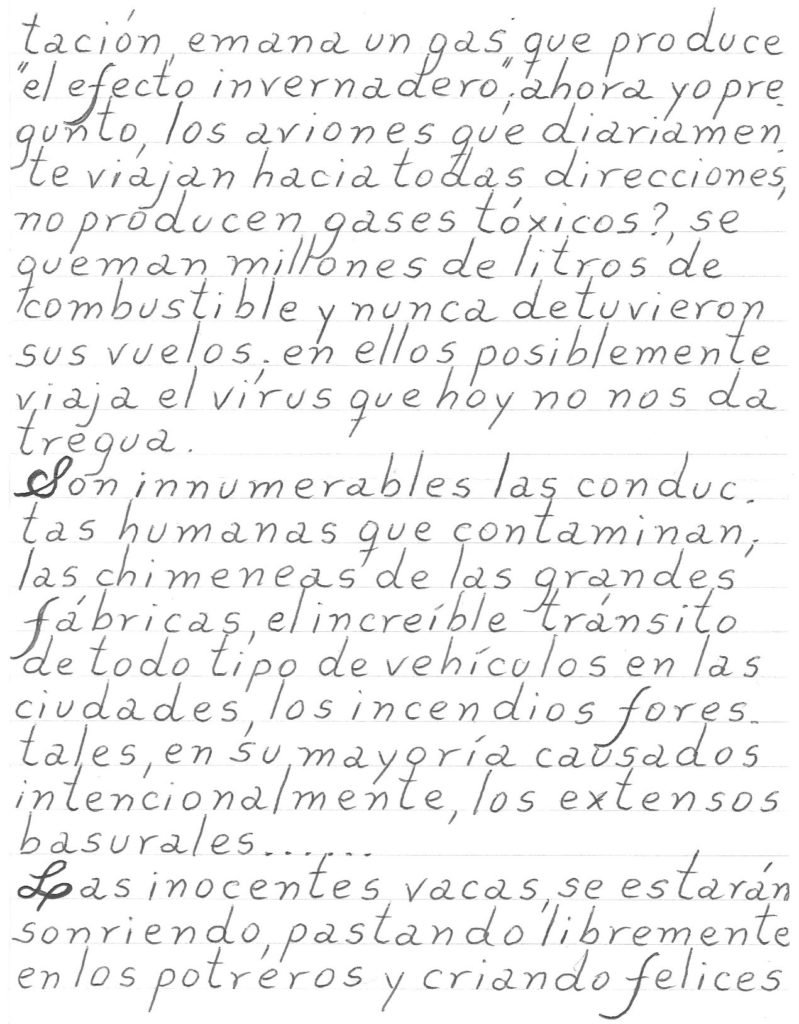 tación, emana un gas que produce
"el efecto invernadero"; ahora yo pre_
gunto, los aviones que diariamen_
te viajan hacia todas direcciones,
no producen gases tóxicos?, se
queman millones de litros de
combustible y nunca detuvieron
sus vuelos; en ellos posiblemente
viaja el vírus que hoy no nos da
tregua.
Son innumerables las conduc_
tas humanas que contaminan;
las chimeneas de las grandes
fábricas, el increíble tránsito
de todo tipo de vehículos en las
ciudades, los incendios fores_
tales, en su mayoría causados
intencionalmente, los extensos
basurales......
Las inocentes vacas, se estarán
sonriendo, pastando libremente
en los potreros y criando felices